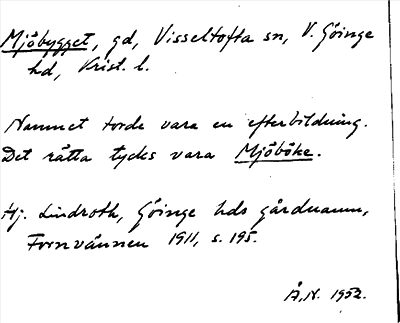 Mjöbygget, gd, Visseltofta sn, V. Göinge
hd, Krist. l.
Namnet torde vara en efterbildning.
Det rätta tycks vara Mjöböke.
Hj. Lindroth, Göinge hds gårdnamn,
Fornvännen 1911, s. 195.
Å.N. 1952.